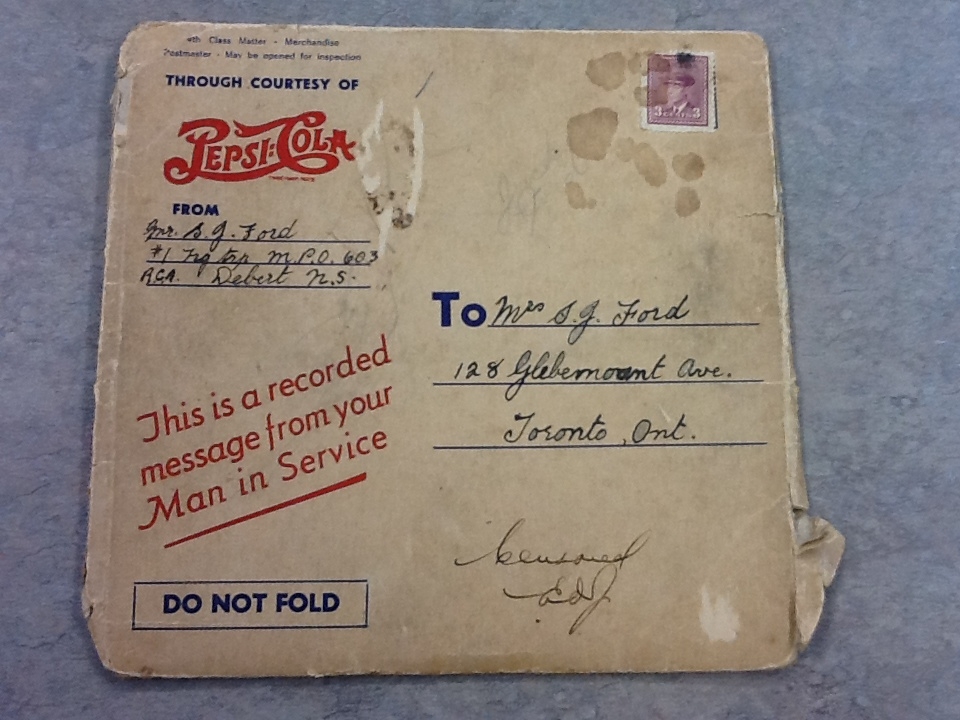 th Class Matter - Merchandise
Postmaster - May be opened for inspection
THROUGH COURTESY OF
PEPSI-COLA
FROM
Mr. S.J. Ford
#1 Trg trp M.P.O. 603
RCA. Debert N.S.
To Mrs S.J. Ford
128 Glebemount Ave.
Toronto, Ont.
This is a recorded
message from your
Man in Service
Censored
DO NOT FOLD
3 CENTS 3